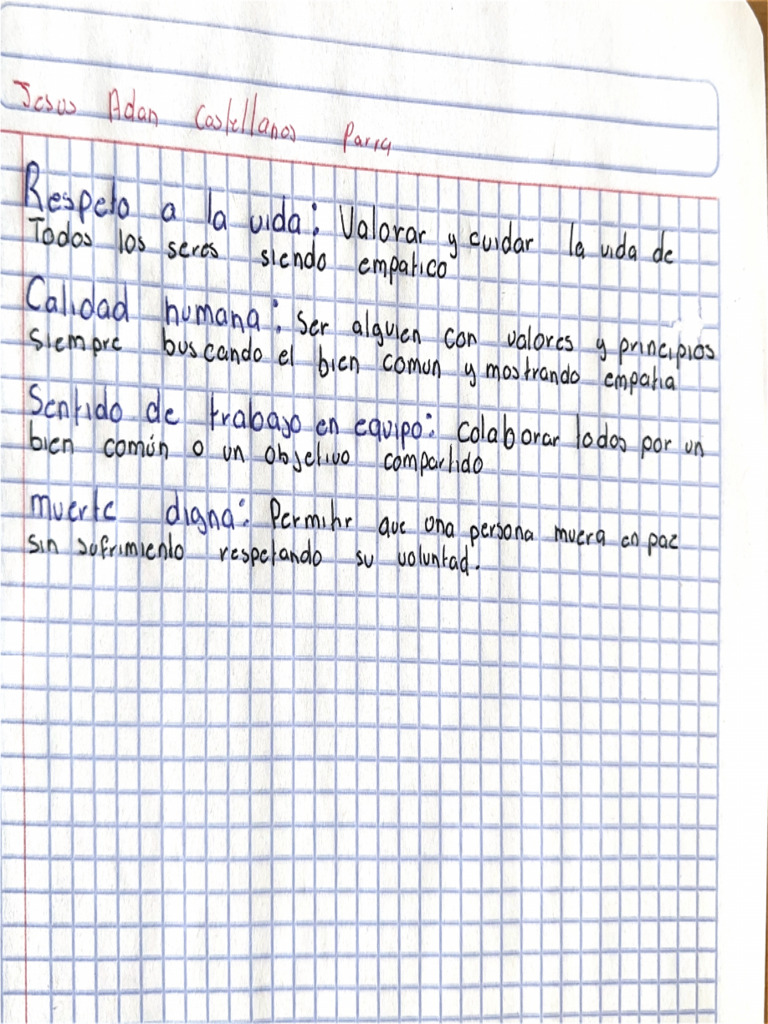 Jesus Adan Castellanos Parra
Respeto a la vida: Valorar y cuidar la vida de
Todos los seres siendo empatico
Calidad humana: Ser alguien con valores y principios
siempre buscando el bien comun y mostrando empatia
Sentido de trabajo en equipo: Colaborar todos por un
bien común o un objetivo compartido
muerte digna: Permitir que una persona muera en paz
sin sufrimiento respetando su voluntad.